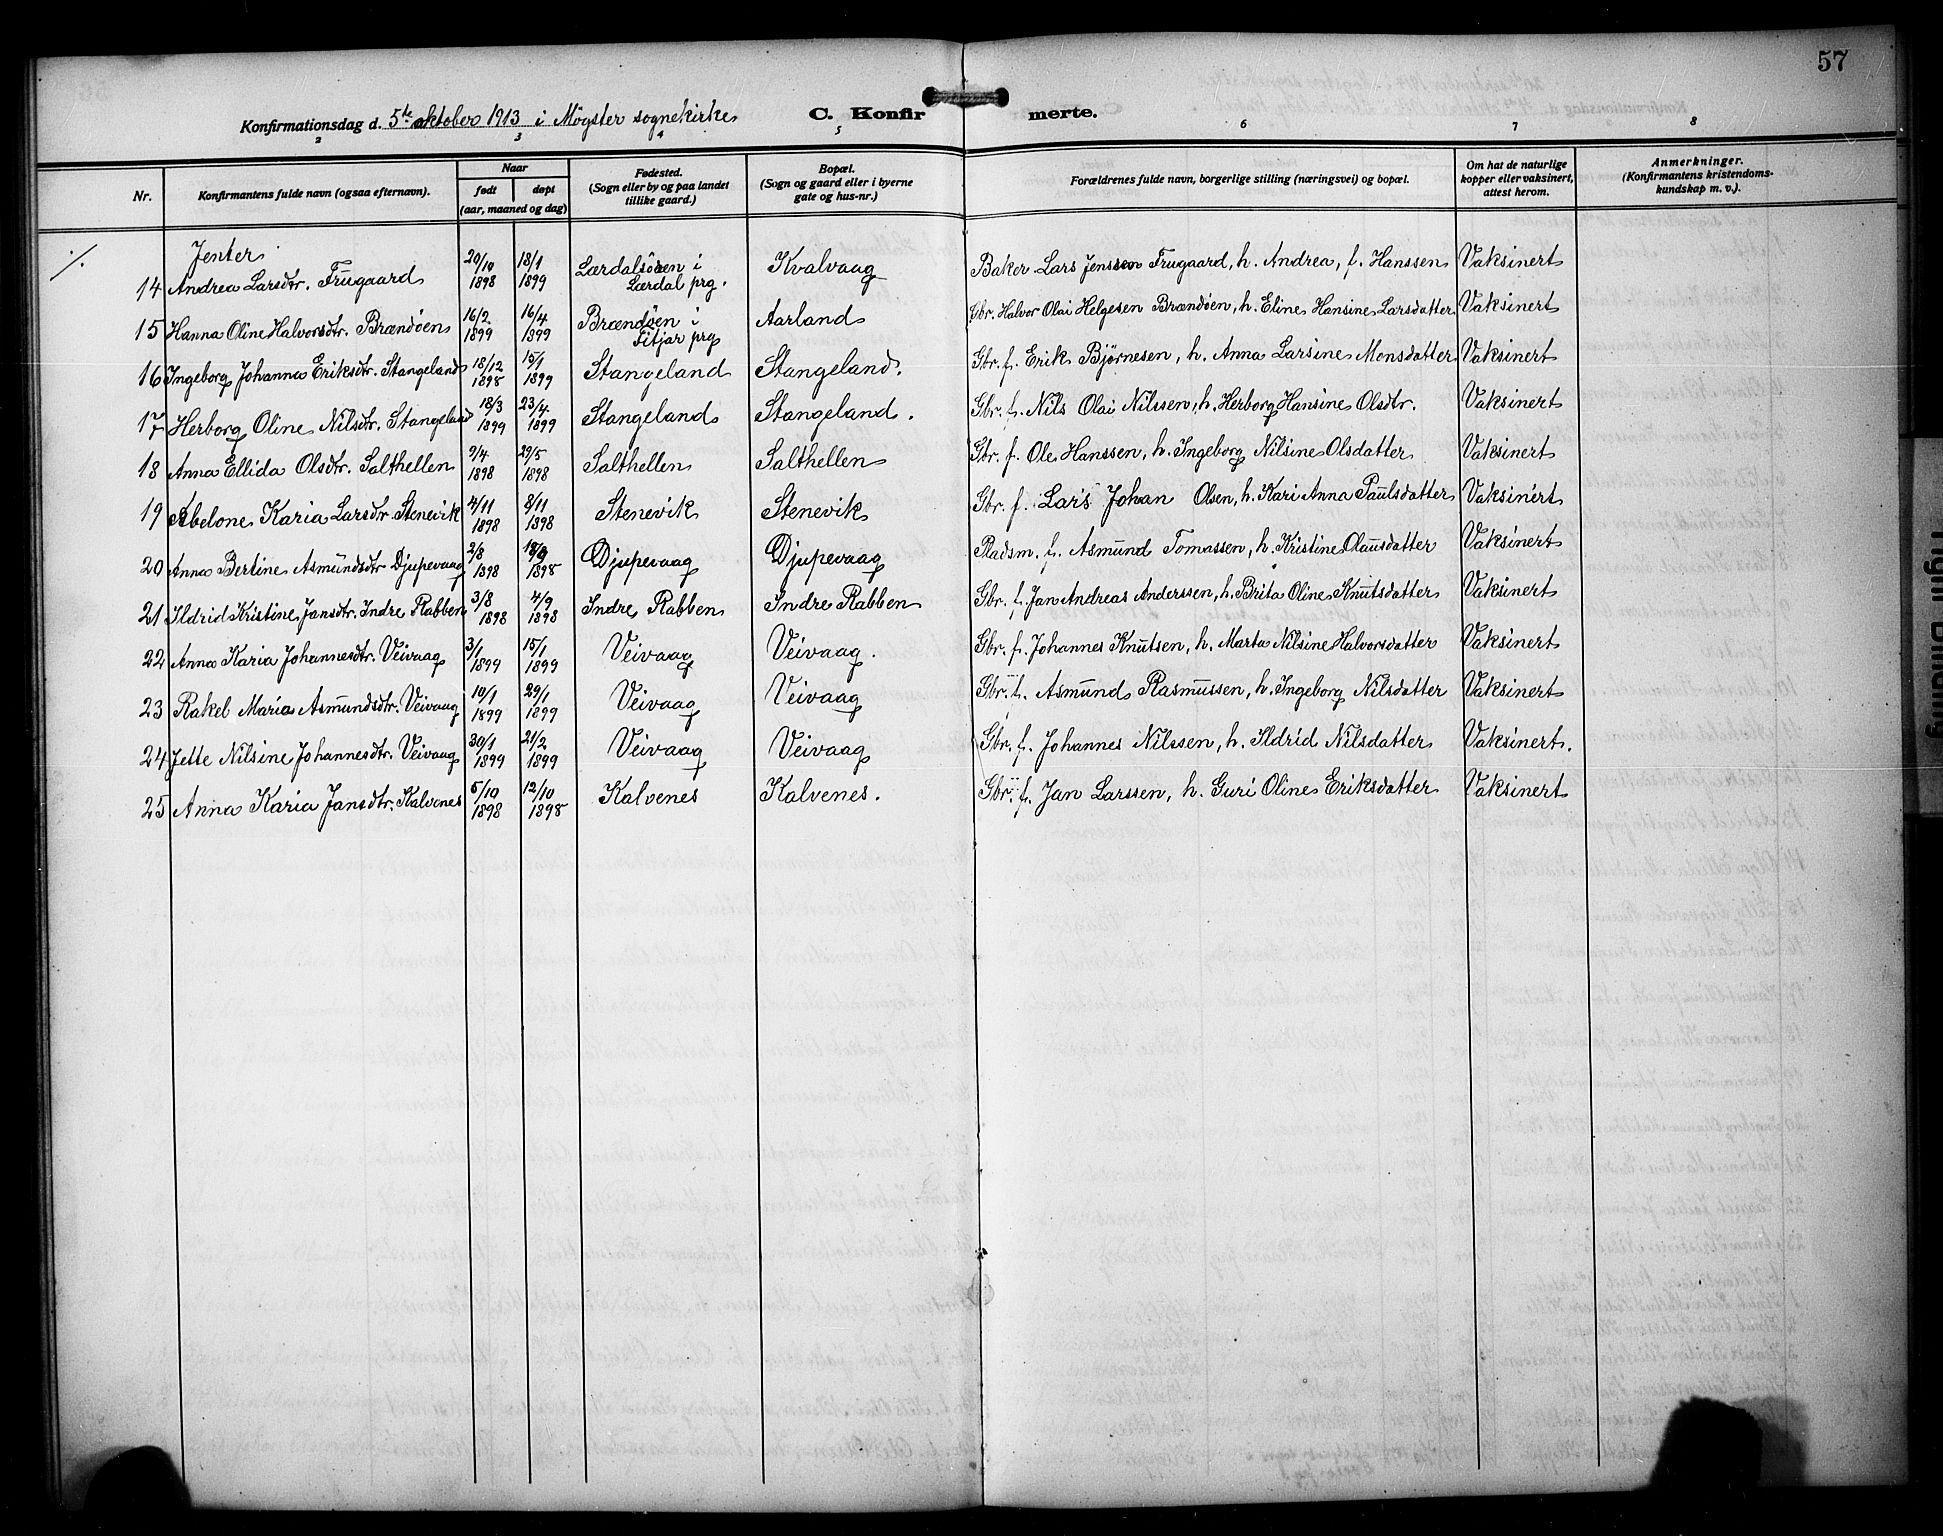 57
Konfirmationsdag d. 5te oktober 1913 i Møgster sognekirke C. Konfirmerte.
2 3 4 5 6 7 8
Nr. Konfirmantens fulde navn (ogsaa efternavn). Naar født døpt (aar, maaned og dag) Fødested. (Sogn eller by og paa landet tillike gaard.) Bopæl. (Sogn og gaard eller i byerne gate og hus-nr.) Forældrenes fulde navn, borgerlige stilling (næringsvei) og bopæl. Om hat de naturlige kopper eller vaksinert, attest herom. Anmerkninger. (Konfirmantens kristendomskundskap m. v.).
Jenter
14 Andrea Larsdtr. Frugaard 20/10 1898 18/1 1899 Lærdalsøren i Lærdal prg. Kvalvaag Baker Lars Jenssen Frugaard, h. Andrea, f. Hanssen Vaksinert
15 Hanna Oline Halvorsdtr. Brandøen 16/2 1899 16/4 1899 Brandøen i Fitjar prg Aarland Gbr. Halvor Olai Helgesen Brandøen, h. Eline Hansine Larsdatter Vaksinert
16 Ingeborg Johanna Eriksdtr. Stangeland 18/12 1898 15/1 1899 Stangeland Stangeland. Gbr. f. Erik Bjørnesen, h. Anna Larsine Monsdatter Vaksinert
17 Herborg Oline Nilsdtr. Stangeland 18/3 1899 23/4 1899 Stangeland Stangeland. Gbr. f. Nils Olai Nilssen, h. Herborg Hansine Olsdtr. Vaksinert
18 Anna Ellida Olsdtr. Salthellen 9/4 1898 29/5 1898 Salthellen Salthellen Gbr. f. Ole Hanssen, h. Ingeborg Nilsine Olsdatter Vaksinert
19 Abelone Karia Larsdtr Stenevik 4/11 1898 8/11 1898 Stenevik Stenevik Gbr. f. Lars Johan Olsen, h. Kari Anna Paulsdatter Vaksinert
20 Anna Bertine Asmundsdtr Djupevaag 2/8 1898 1898 Djupevaag Djupevaag Pladsm. f. Asmund Tomassen, h. Kristine Olausdatter Vaksinert
21 Ildrid Kristine Jansdtr. Indre Rabben 3/8 1898 4/9 1898 Indre Rabben Indre Rabben Gbr. f. Jan Andreas Anderssen, h. Brita Oline Knutsdatter Vaksinert
22 Anna Karia Johannesdtr. Veivaag 3/1 1899 15/1 1899 Veivaag Veivaag. Gbr. f. Johannes Knutsen, h. Marta Nilsine Halvorsdatter Vaksinert
23 Rakel Maria Asmundsdtr. Veivaag 10/1 1899 29/1 1899 Veivaag Veivaag Gbr. f. Asmund Rasmussen, h. Ingeborg Nilsdatter Vaksinert
24 Jette Nilsine Johannesdtr. Veivaag 30/1 1899 21/2 1899 Veivaag Veivaag Gbr. f. Johannes Nilssen, h. Ildrid Nilsdatter Vaksinert.
25 Anna Karia Jansdtr. Kalvenes 5/10 1898 12/10 1898 Kalvenes Kalvenes. Gbr. f. Jan Larssen, h. Guri Oline Eriksdatter Vaksinert